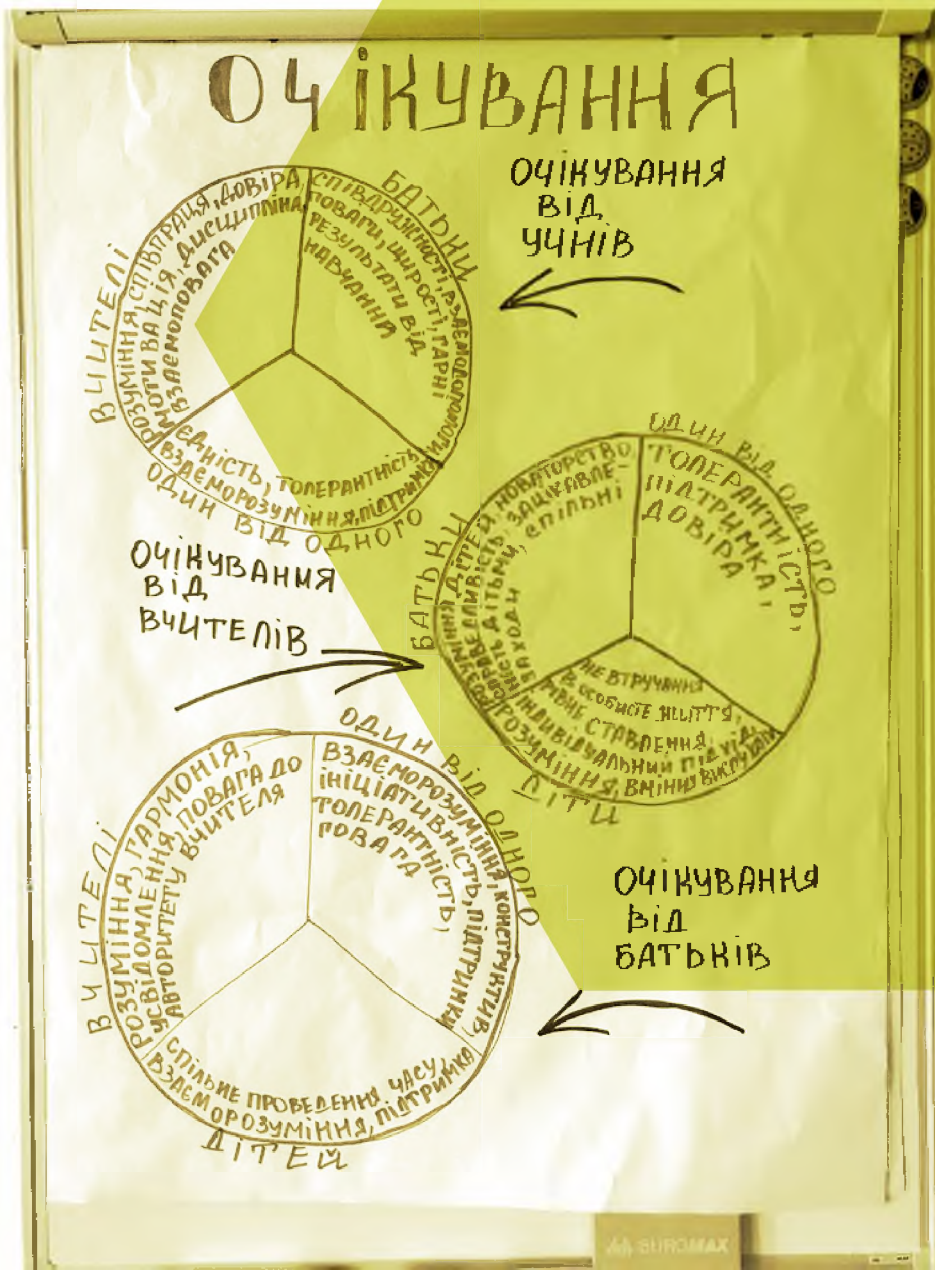 ОЧІКУВАННЯ
ОЧІКУВАННЯ
ВІД
УЧНІВ
ВЧИТЕЛІ
РОЗУМІННЯ, СПІВПРАЦЯ, ДОВІРА,
МОТИВАЦІЯ, ДИСЦИПЛІНА,
ВЗАЄМОПОВАГА
БАТЬКИ
СПІВДРУЖНОСТІ, ВЗАЄМОДОПОМОГИ
ПОВАГИ, ЩИРОСТІ, ГАРНІ
РЕЗУЛЬТАТИ ВІД
НАВЧАННЯ
ЄДНІСТЬ, ТОЛЕРАНТНІСТЬ
ВЗАЄМОРОЗУМІННЯ, ПІДТРИМКА
ОДИН ВІД ОДНОГО
ОЧІКУВАННЯ
ВІД
ВЧИТЕЛІВ
БАТЬКИ
РОЗУМІННЯ ДІТЕЙ, НОВАТОРСТВО,
СПРАВЕДЛИВІСТЬ, ЗАЦІКАВЛЕ-
НІСТЬ ДІТЬМИ, СПІЛЬНІ
ЗАХОДИ
ОДИН ВІД ОДНОГО
ТОЛЕРАНТНІСТЬ,
ПІДТРИМКА,
ДОВІРА
НЕ ВТРУЧАННЯ
В ОСОБИСТЕ ЖИТТЯ,
РІВНЕ СТАВЛЕННЯ,
ІНДИВІДУАЛЬНИЙ ПІДХІД,
РОЗУМІННЯ, ВМІННЯ
ДІТИ
ВЧИТЕЛІ
РОЗУМІННЯ, ГАРМОНІЯ,
УСВІДОМЛЕННЯ, ПОВАГА ДО
АВТОРИТЕТУ ВЧИТЕЛЯ
ОДИН ВІД ОДНОГО
ВЗАЄМОРОЗУМІННЯ, КОНСТРУКТИВ,
ІНІЦІАТИВНІСТЬ, ПІДТРИМКИ
ТОЛЕРАНТНІСТЬ,
ПОВАГА
СПІЛЬНЕ ПРОВЕДЕННЯ ЧАСУ,
ВЗАЄМОРОЗУМІННЯ, ПІДТРИМКА
ДІТЕЙ
ОЧІКУВАННЯ
ВІД
БАТЬКІВ
BUROMAX